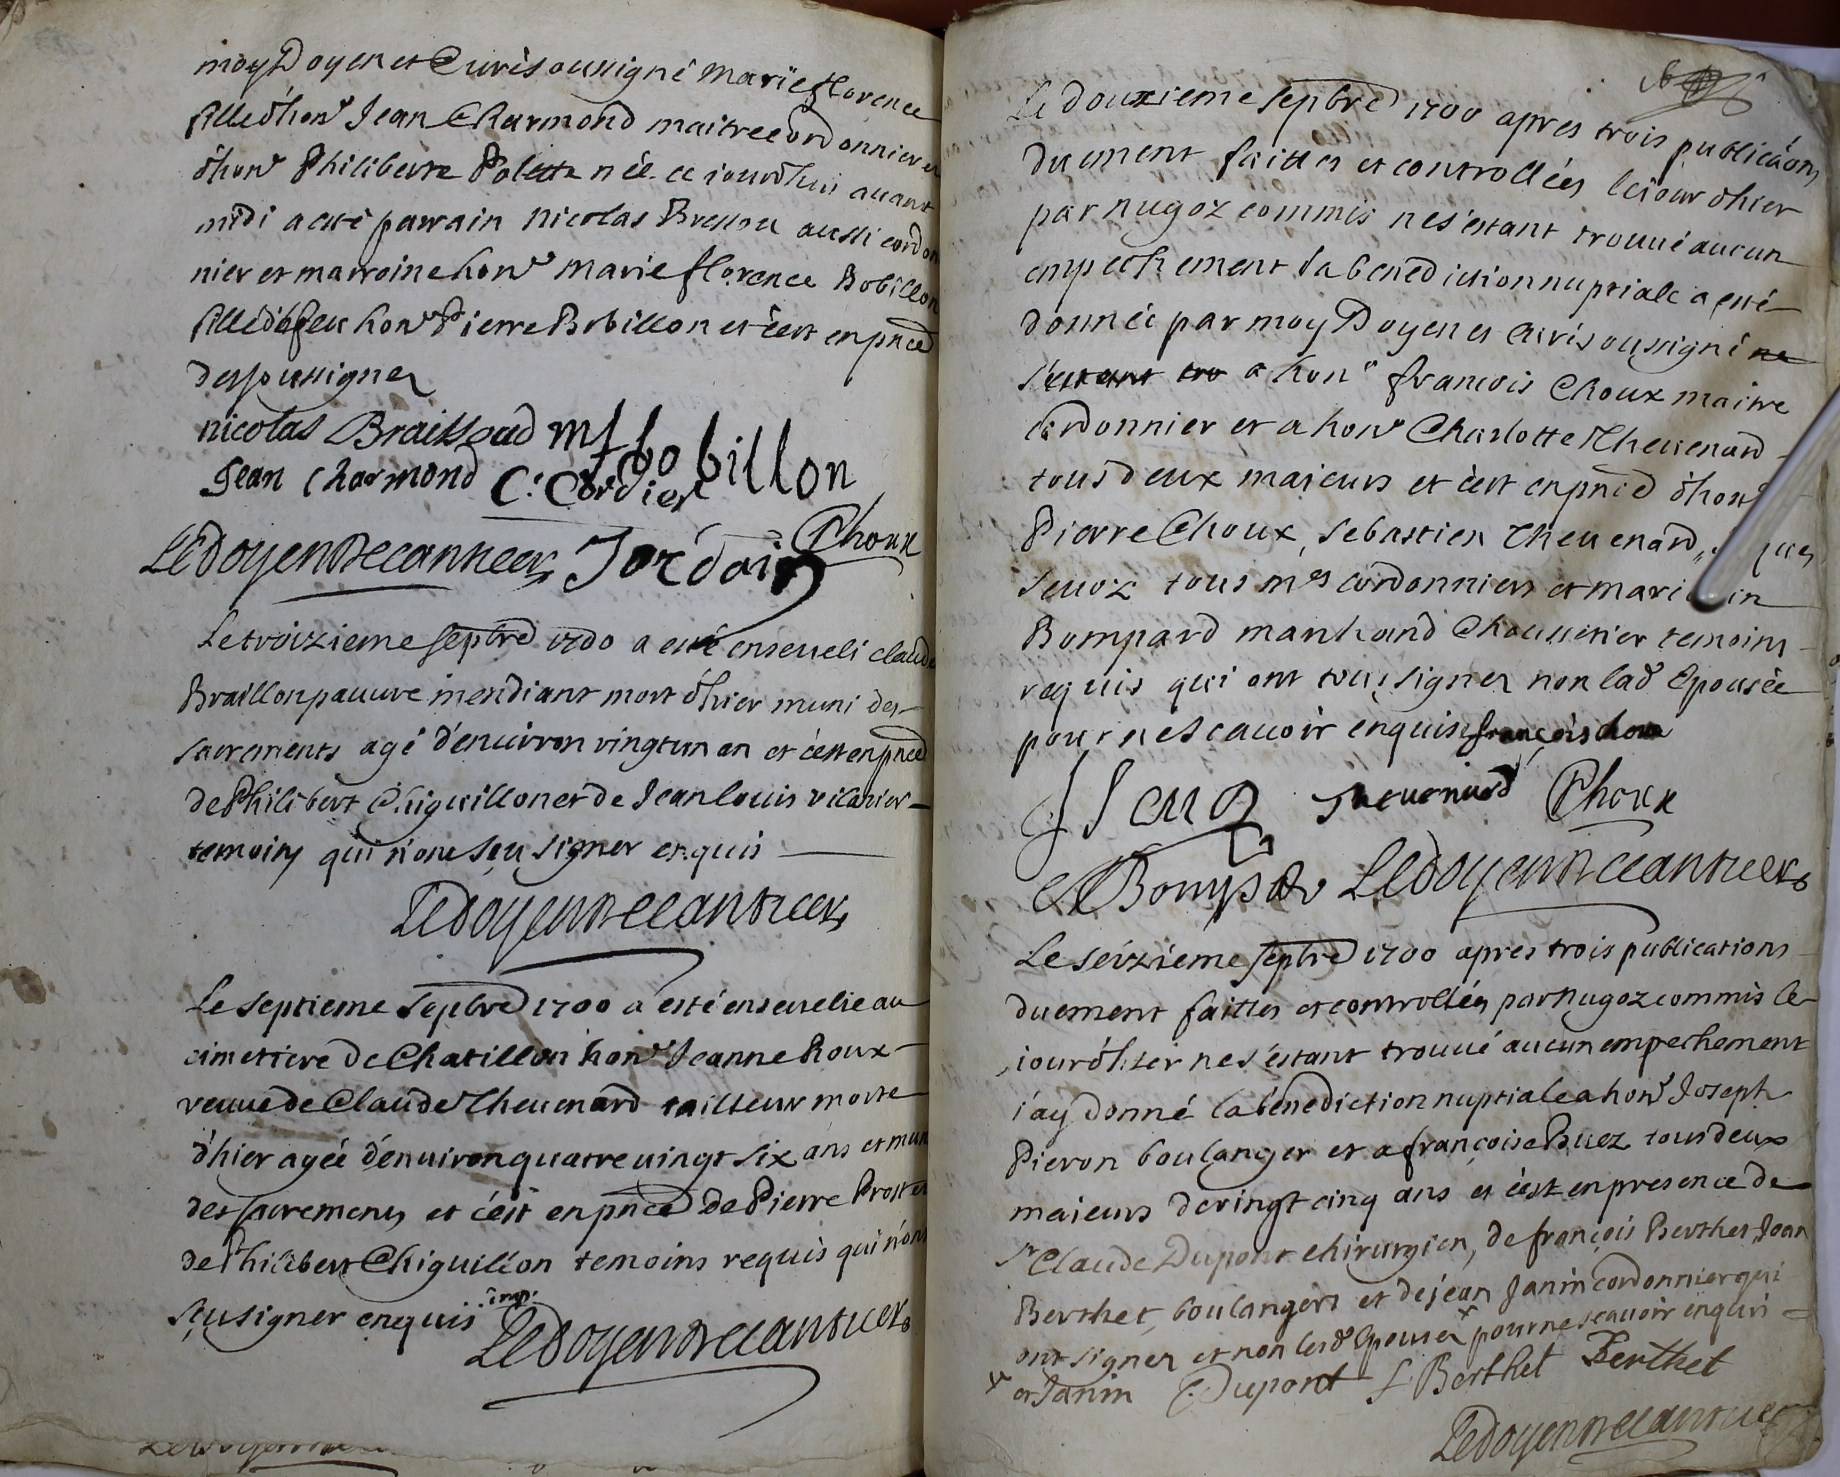 moy Doyen et Curé soussigné Marie florence
fille d'hon.e Jean Charmond maitre cordonnier et
d'hon.e Philiberte Polette née ce iourd'hui auant
midi a esté parrain Nicolas Bressou aussi cordon
nier et marroine hon.e Marie florence Bobillon
fille de feu hon.e Pierre Bobillon et c'est en pnce
des soussignez
nicolas Braissoud mf bobillon
Jean Charmond C. Cordier
Choux
Ledoyen Jordain
Le troizieme septbre 1700 a esté enseueli claude
Braillon pauure mendiant mort d'hier muni des
sacrements agé d'enuiron vingt un an et c'est en pnce
de Philibert Chiguillon et de Jean louis vilanier
temoins qui n'ont sçu signer enquis
Ledoyen
Le septieme septbre 1700 a esté enseuelie au
cimettiere de Chatillon hon.e Jeanne Roux
veuue de Claude Theuenard tailleur morte
d'hier agée d'enuiron quatre uingt six ans et muni
des sacremens et c'est en pnce de Pierre Prost et
de Philibert Chiguillon temoins requis qui n'ont
sçu signer enquis
Ledoyen
Le douxieme septbre 1700 apres trois publicãons
duement faittes et controllées le iour d'hier
par nugoz commis ne s'estant trouué aucun
empechement la benediction nuptiale a esté
donnée par moy Doyen et Curé soussigné ne
s'estant tro a hon.e francois Choux maitre
cordonnier et a hon.e Charlotte Theuenard
tous deux maieurs et c'est en pnce d'hon.e
Pierre Choux, Sebastien Theuenard,
Seuoz tous m.es cordonniers et
Bompard marchand Chaussetier temoins
requis qui ont tous signez non lad. Epousée
pour ne scauoir enquise françois choux
J Seuoz Theuenard Choux
Bompar Ledoyen
Le séizieme septbre 1700 apres trois publications
duement faittes et controllées par nugoz commis le
iour d'hier ne s'estant trouué aucun empechement
i'ay donné la bénediction nuptiale a hon.e Joseph
Pieron boulanger et a françoise Buez tous deux
maieurs de vingt cinq ans et c'est en presence de
Sr Claude Dupont chirurgien, de françois Berthet Jean
Berthet, boulangers et de jean Janin cordonnier qui
ont signez et non lesd. Epousez x pour ne scauoir enquis
x et Janin C. Dupont f. Berthet Berthet
Ledoyen